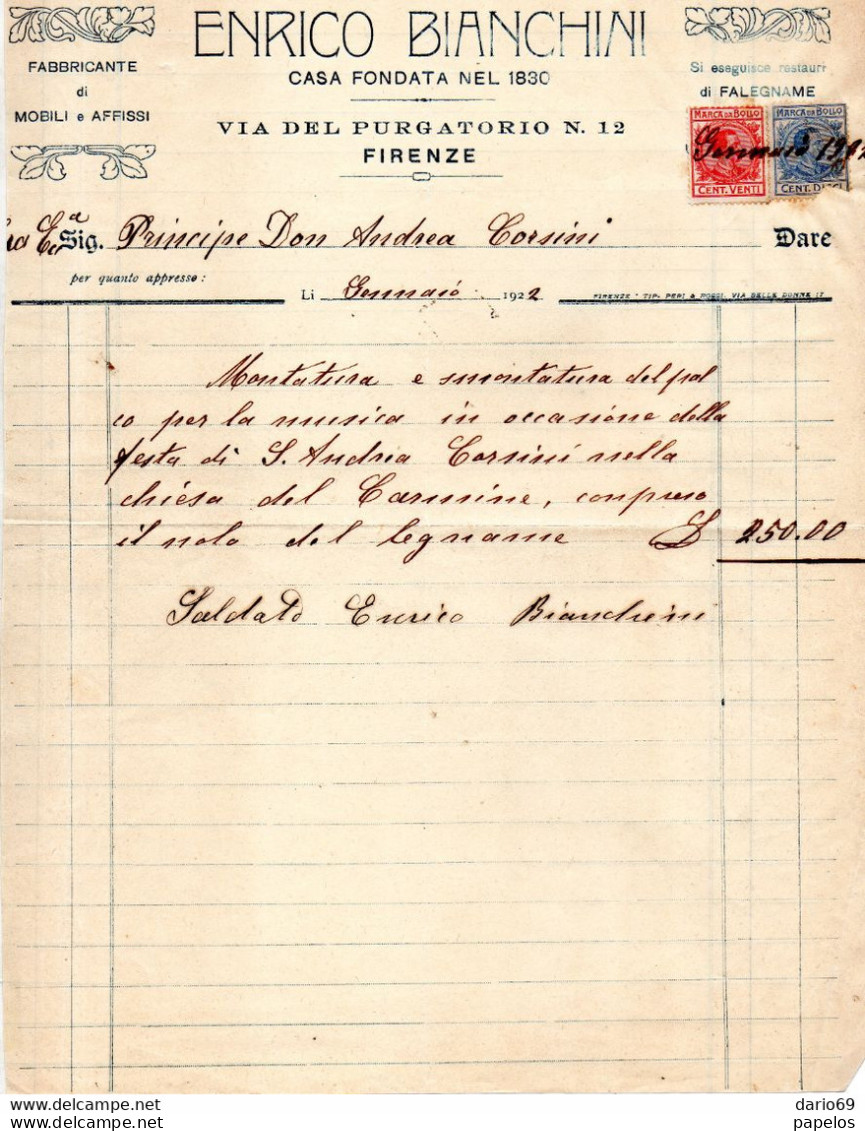 ENRICO BIANCHINI
CASA FONDATA NEL 1830
VIA DEL PURGATORIO N. 12
FIRENZE
FABBRICANTE
di
MOBILI e AFFISSI
Si eseguisce restauri
di FALEGNAME
MARCA DA BOLLO
CENT. VENTI
MARCA DA BOLLO
CENT. DIECI
Gennaio 1922
Sig. Principe Don Andrea Corsini Dare
per quanto appresso:
Li Gennaio 1922
FIRENZE - TIP. PERI & ROSSI, VIA DELLE DONNE 17
Montatura e smontatura del pal
co per la musica in occasione della
festa di S. Andrea Corsini nella
chiesa del Carmine, conpreso
il nolo del legname £ 250.00
Saldato Enrico Bianchini
dario69
papelos